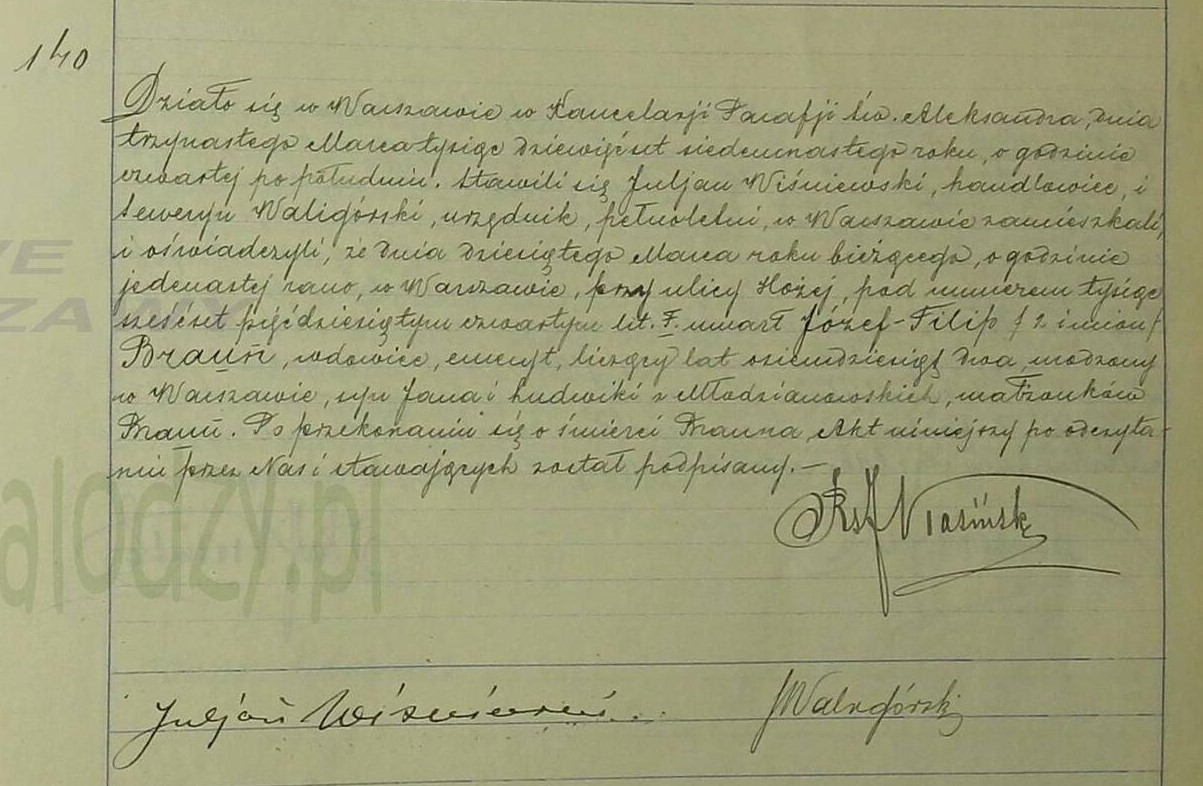 140
Działo się w Warszawie w Kancelarji Parafji św. Aleksandra, dnia
trzynastego Marca tysiąc dziewięćset siedemnastego roku, o godzinie
czwartej po południu. Stawili się Juljan Wiśniewski, handlowiec, i
Seweryn Waligórski, urzędnik, pełnoletni, w Warszawie zamieszkali,
i oświadczyli, że dnia dziesiątego Marca roku bieżącego, o godzinie
jedenastej rano, w Warszawie, przy ulicy Hożej, pod numerem tysiąc
sześćset pięćdziesiątym czwartym lit. F. umarł Józef-Filip /2 imion/
Braun, wdowiec, emeryt, liczący lat osiemdziesiąt dwa, urodzony
w Warszawie, syn Jana i Ludwiki z Młodzianowskich, małżonków
Braun. Po przekonaniu się o śmierci Brauna, Akt niniejszy po odczyta-
niu przez Nas i stawających został podpisany. —
Ks J
Juljan Wiśniewski
SWaligórski
WE
ZAWY
alodzy.pl